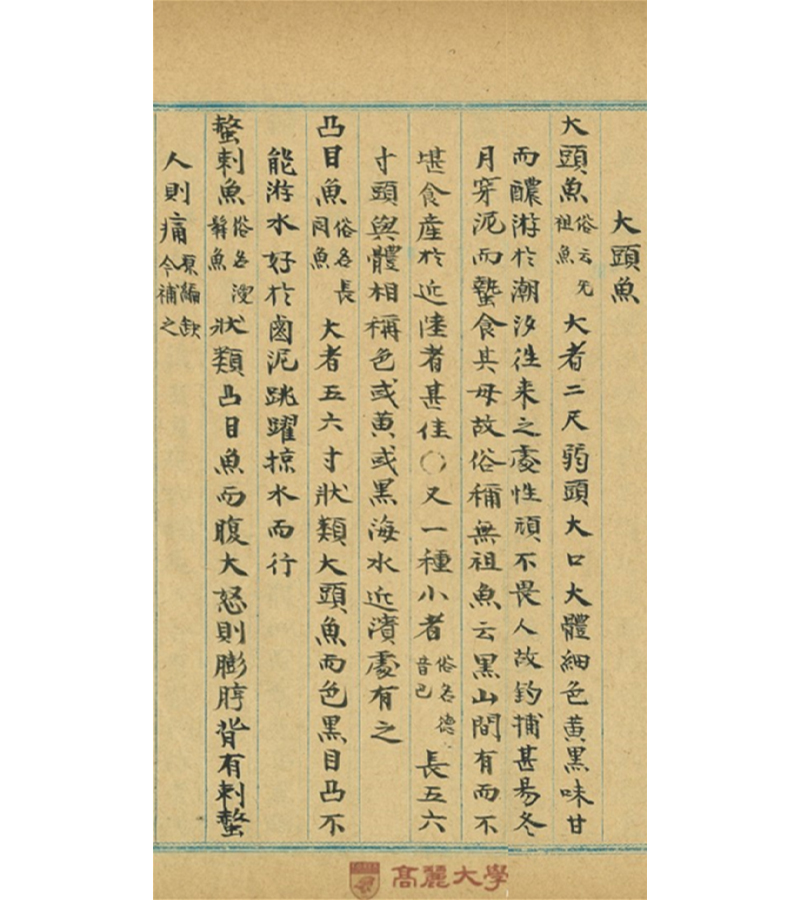 大頭魚
大頭魚俗云无祖魚大者二尺弱頭大口大體細色黃黑味甘
而醲游於潮汐徃來之處性頑不畏人故釣捕甚易冬
月穿泥而蟄食其母故俗稱無祖魚云黑山間有而不
堪食産於近陸者甚佳〇又一種小者俗名德音已長五六
寸頭與體相稱色或黃或黑海水近濱處有之
凸目魚俗名長同魚大者五六寸狀類大頭魚而色黑目凸不
能游水好於鹵泥跳躍掠水而行
螫刺魚俗名溲髯魚狀類凸目魚而腹大怒則膨脝背有刺螫
人則痛原編缺今補之
高麗大學